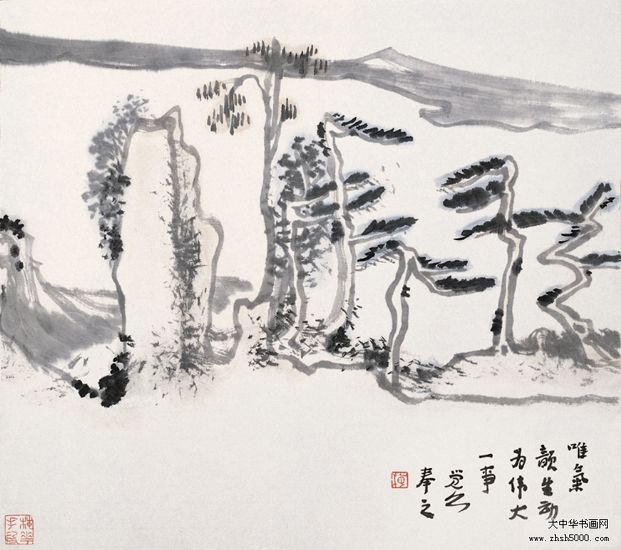 唯氣
韻生动
为伟大
一事
觉公
奉之
大中华书画网
www.zhsh5000.com